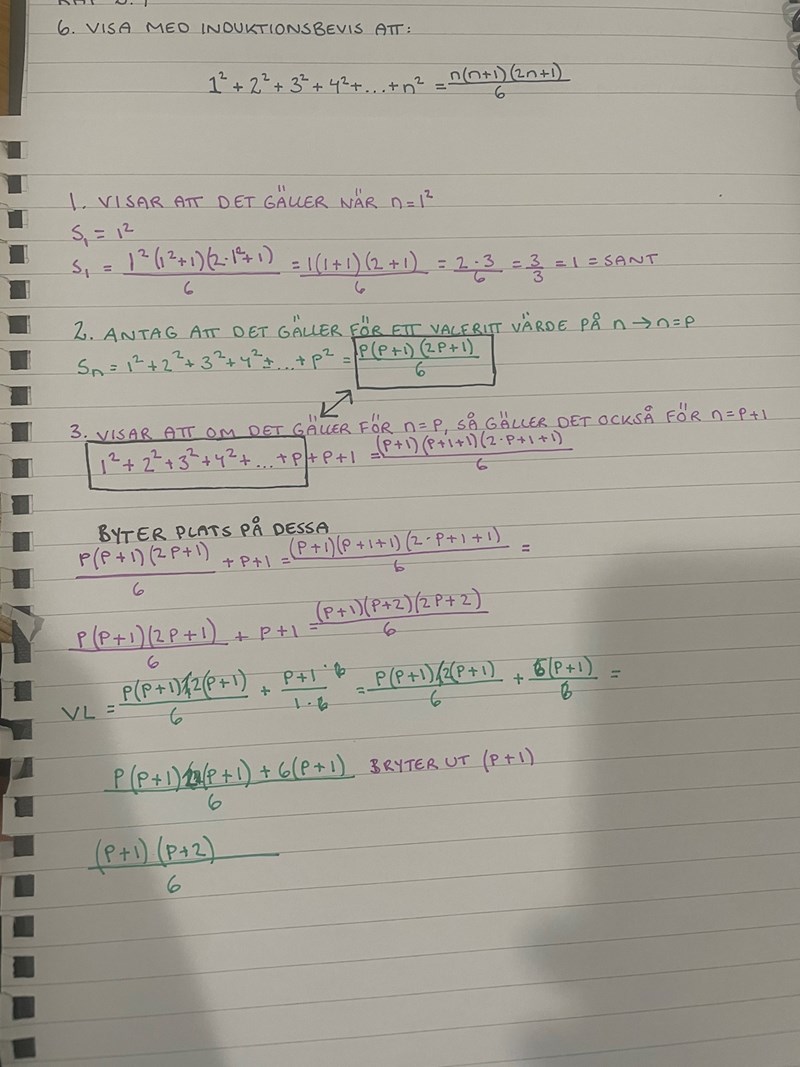 6. VISA MED INDUKTIONSBEVIS ATT:
1² + 2² + 3² + 4² + ... + n² = n(n+1)(2n+1)/6
1. VISAR ATT DET GÄLLER NÄR n=1²
S₁ = 1²
S₁ = 1²(1²+1)(2·1²+1)/6 = 1(1+1)(2+1)/6 = 2·3/6 = 3/3 = 1 = SANT
2. ANTAG ATT DET GÄLLER FÖR ETT VALFRITT VÄRDE PÅ n → n=P
Sₙ = 1² + 2² + 3² + 4² + ... + P² = P(P+1)(2P+1)/6
3. VISAR ATT OM DET GÄLLER FÖR n=P, SÅ GÄLLER DET OCKSÅ FÖR n=P+1
1² + 2² + 3² + 4² + ... + P + P+1 = (P+1)(P+1+1)(2·P+1+1)/6
BYTER PLATS PÅ DESSA
P(P+1)(2P+1)/6 + P+1 = (P+1)(P+1+1)(2·P+1+1)/6 =
P(P+1)(2P+1)/6 + P+1 = (P+1)(P+2)(2P+2)/6
VL = P(P+1)2(P+1)/6 + P+1·6/1·6 = P(P+1)2(P+1)/6 + 6(P+1)/6 =
P(P+1)2(P+1) + 6(P+1)/6 BRYTER UT (P+1)
(P+1)(P+2)/6